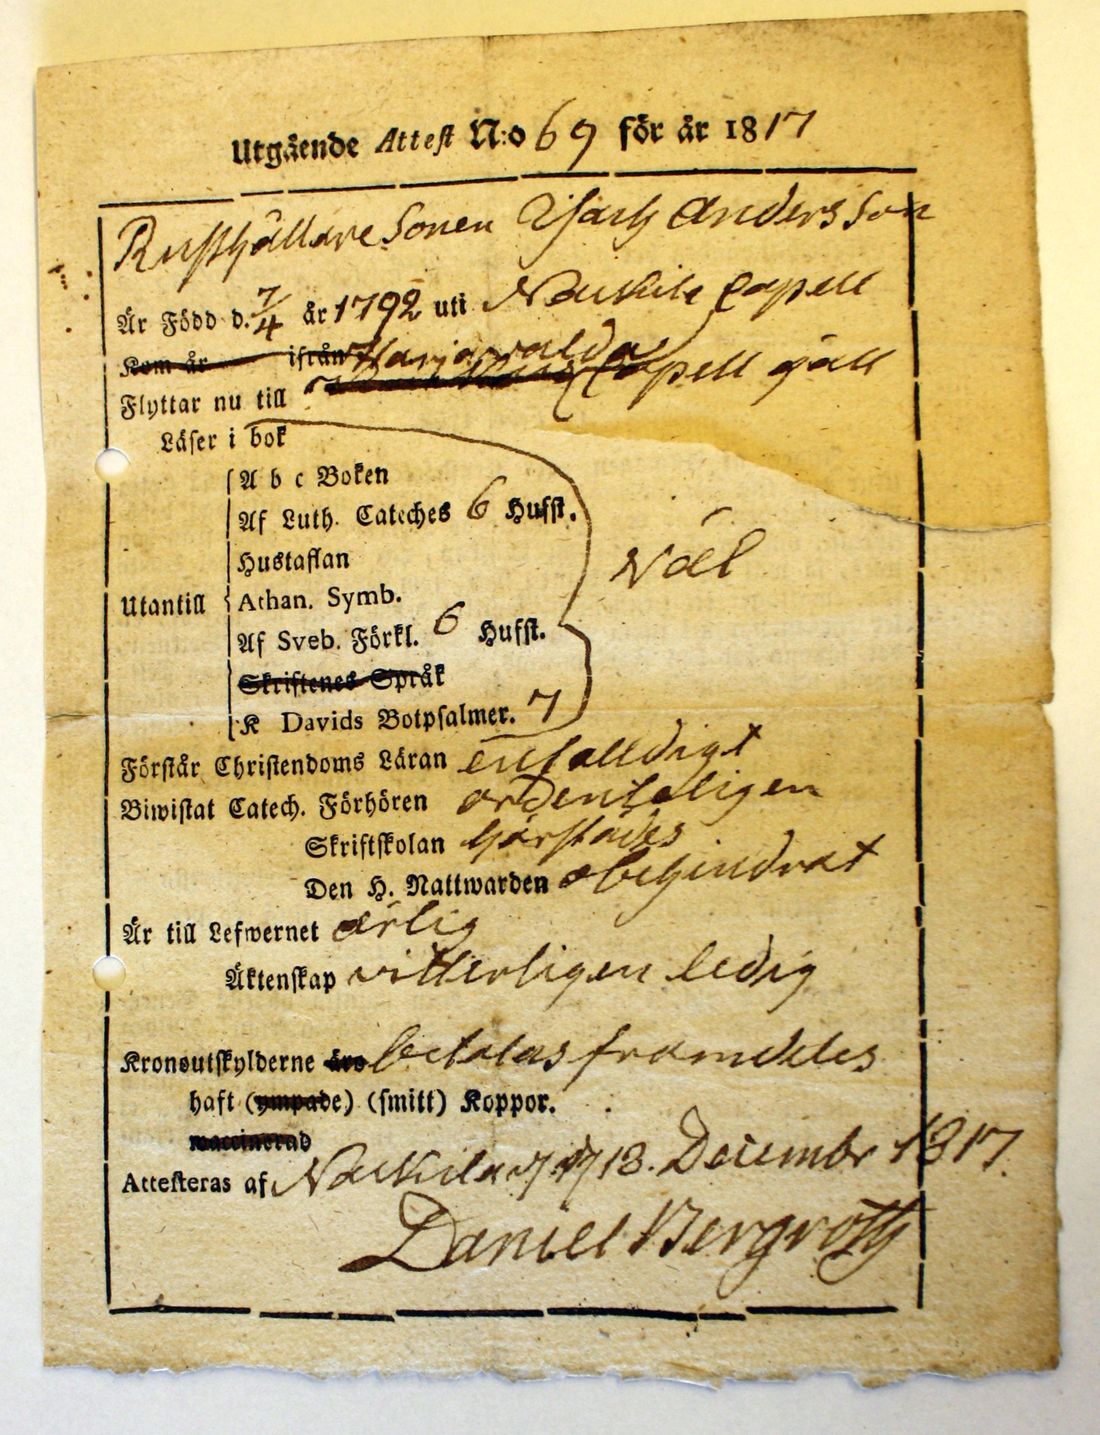 Utgående Attest N:o 69 för år 1817
Rusthållare Sonen Isach Andersson
Är Född d. 7/4 år 1792 uti Nackila Capell
Kom år ifrån Harjavalda
Flyttar nu till Capell gäll
Läser i bok
A b c Boken
Af Luth. Cateches 6 Hufst.
Hustaflan
väl
Utantill Athan. Symb.
Af Sveb. Förkl. 6 Hufst.
Skriftenes Språk
K Davids Botpsalmer. 7
Förstår Christendoms Läran enfalldigt
Biwistat Catech. Förhören ordenteligen
Skriftskolan härstädes
Den H. Nattwarden obehindrat
Är till Lefwernet ärlig
Äktenskap vitterligen ledig
Kronoutskylderne äro betalas framdeles
haft (ympade) (smitt) Koppor.
waccinerad
Attesteras af Nackila 18. December 1817.
Daniel Bergroth